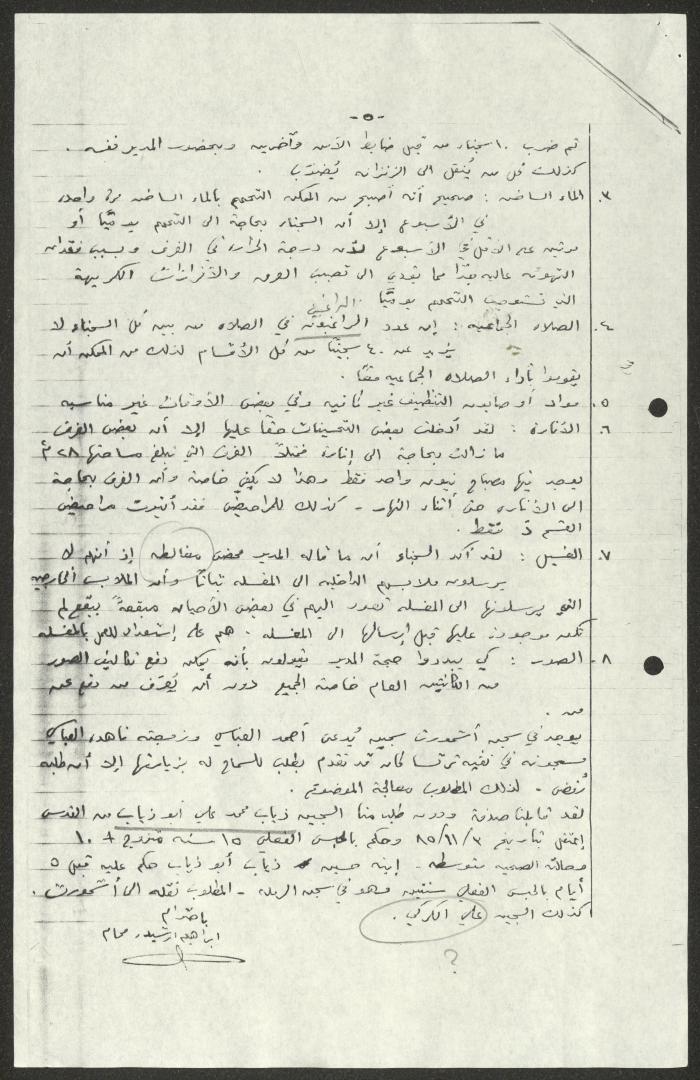 -٥-
تم ضرب ١٠ سجناء من قبل ضابط الأمن وآخرين وبحضور المدير نفسه .
كذلك كل من يُنقل الى الزنزانه يُضرَب .
٣. الماء الساخن : صحيح أنه أصبح من الممكن التحمم بالماء الساخن مرة واحده
في الأسبوع إلا أن السجناء بحاجة الى التحمم يوميًا أو
مرتين على الاقل في الاسبوع لأن درجة الحراره في الغرف وبسبب فقدان
التهوئه عاليه جدًا مما يؤدي الى تصبب العرق والأفرازات الكريهة
التي تستوجب التحمم يوميًا .
الراغبين
٤. الصلاه الجماعيه : إن عدد الراغبون في الصلاه من بين كل السجناء لا
يزيد عن ٤٠ سجينًا من كل الأقسام لذلك من الممكن أن
يقوموا بأداء الصلاه الجماعيه معًا .
٥. مواد أو صابون التنظيف غير كافيه وفي بعض الأوقات غير مناسبه
٦. الأناره : لقد أدخلت بعض التحسينات حقًا عليها إلا أن بعض الغرف
ما زالت بحاجة الى إناره فمثلاً الغرف التي تبلغ مساحتها ٢٨م٢
يوجد فيها مصباح نيون واحد فقط وهذا لا يكفي خاصة وأن الغرف بحاجة
الى الأناره حتى أثناء النهار - كذلك للمراحيض فقد أنيرت مراحيض
القسم د فقط .
٧. الغسيل : لقد أكد السجناء أن ما قاله المدير محض مغالطه إذ أنهم لا
يرسلون ملابسهم الداخليه الى المغسله بتاتًا وأن الملابس الخارجيه
التي يرسلونها الى المغسله تعود اليهم في بعض الأحيان مبقعةً ببقع لم
تكن موجودة عليها قبل إرسالها الى المغسله . هم على إستعداد للعمل بالمغسله
٨- الصور : كي يبددوا حجة المدير يقولون بأنه يمكن دفع تكاليف الصور
من الكانتين العام خاصة الجميع دون أن يُعرَف من دفع عن
من .
يوجد في سجن أشمورت سجين يُدعى أحمد العباسي وزوجته ناهده العباسي
مسجونه في نفيه ترتسا كان قد تقدم بطلب للسماح له بزيارتها إلا أن طلبه
رُفض - لذلك المطلوب معالجة الموضوع .
لقد قابلنا صدفة ودون طلب منا السجين ذياب محمد علي ابو ذياب من القدس
إعتقل بتاريخ ٨٥/١١/٣ وحكم بالحبس الفعلي ١٥ سنه متزوج + ١٠
وحالته الصحيه متوسطه - إبنه حسين ذياب أبو ذياب حكم عليه قبل ٥
أيام بالحبس الفعلي سنتين وهو في سجن الرمله - المطلوب نقله الى أشمورت .
كذلك السجين علي الكركي .
باحترام
ابراهيم ارشيد محام
؟